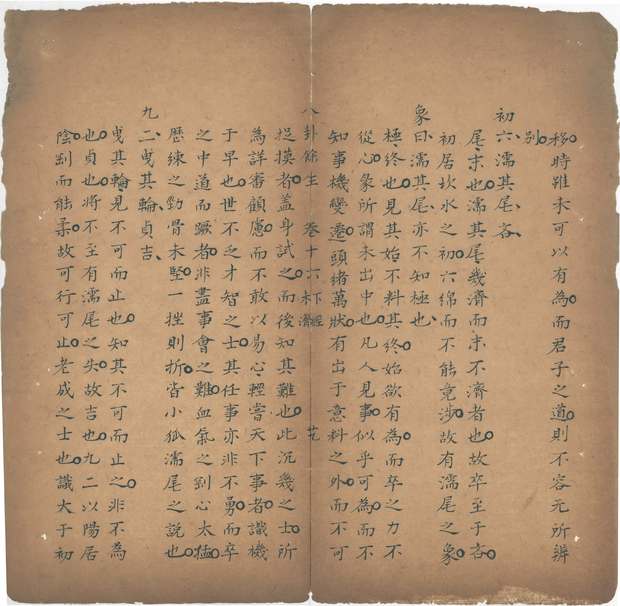 移時雖未可以有為而君子之道則不容无所辨
別
初六濡其尾吝
尾末也濡其尾幾濟而末不濟者也故卒至于吝
初居坎水之初六綿而不能竟涉故有濡尾之象
象曰濡其尾亦不知極也
極終也見其始不料其終始欲有為而卒之力不
從心象所謂未出中也凡人見事似乎可為而不
知事機變遷頭緒萬狀有出于意料之外而不可
八卦餘生 卷十六 下經 未濟 芑
捉摸者蓋身試之而後知其難也此沉幾之士所
為詳審顧慮而不敢以易心輕嘗天下事者識機
于早也世不乏才智之士其任事亦非不勇而卒
之中道而蹶者非盡事會之難血氣之剛心太猛
歷練之勁骨未堅一挫則折皆小狐濡尾之說也
九二曳其輪貞吉
曳其輪見不可而止也知其不可而止之非不為
也貞也將不至有濡尾之失故吉也九二以陽居
陰剛而能柔故可行可止老成之士也識大于初